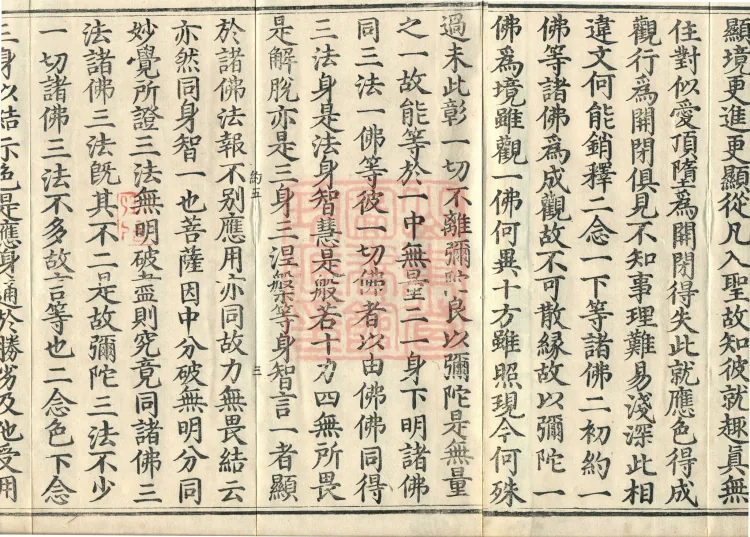 顯境更進更顯從凡入聖故知彼就趣真無
住對似愛頂墮為開閉得失此就應色得成
觀行為開閉俱見不知事理難易淺深此相
違文何能銷釋二念一下等諸佛二初約一
佛等諸佛為成觀故不可散緣故以彌陀一
佛為境雖觀一佛何異十方雖照現今何殊
過未此彰一切不離彌陀良以彌陀是無量
之一故能等於一中無量二一身下明諸佛
同三法一佛等彼一切佛者以由佛佛同得
三法身是法身智慧是般若十力四無所畏
是解脫亦是三身三涅槃等身智言一者顯
約五
三
於諸佛法報不別應用亦同故力無畏結云
亦然同身智一也菩薩因中分破無明分同
妙覺所證三法無明破盡則究竟同諸佛三
法諸佛三法既其不二是故彌陀三法不少
一切諸佛三法不多故言等也二念色下念
三身以結示色是應身通於勝劣及他受用